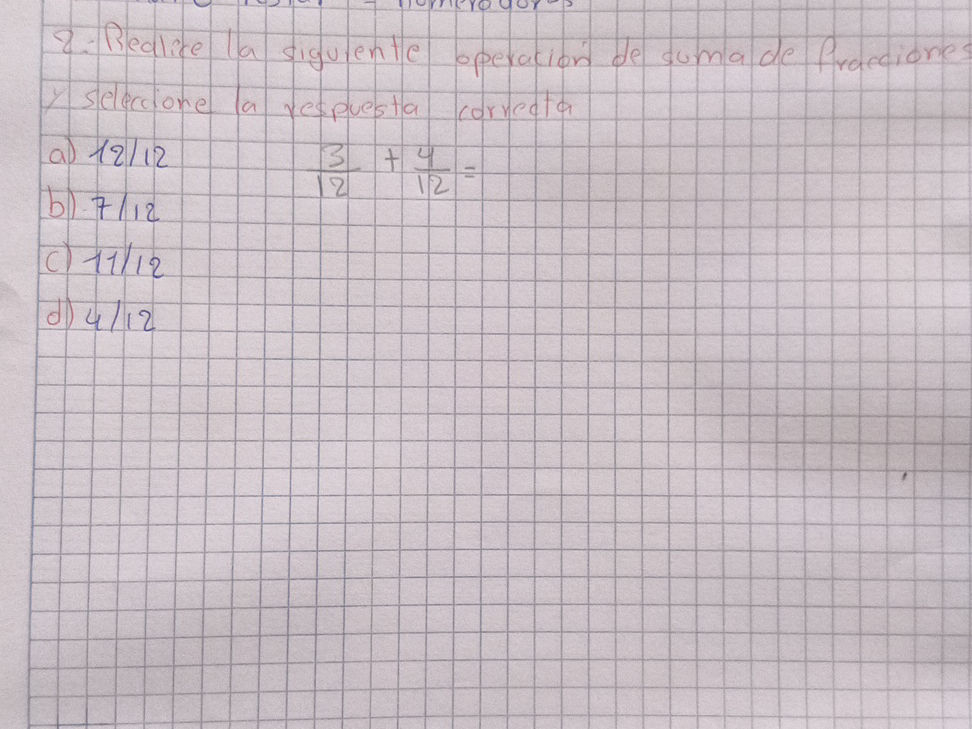 2.- Realice la siguiente operación de suma de fracciones
y seleccione la respuesta correcta
a) 12/12
3/12 + 4/12 =
b) 7/12
c) 11/12
d) 4/12